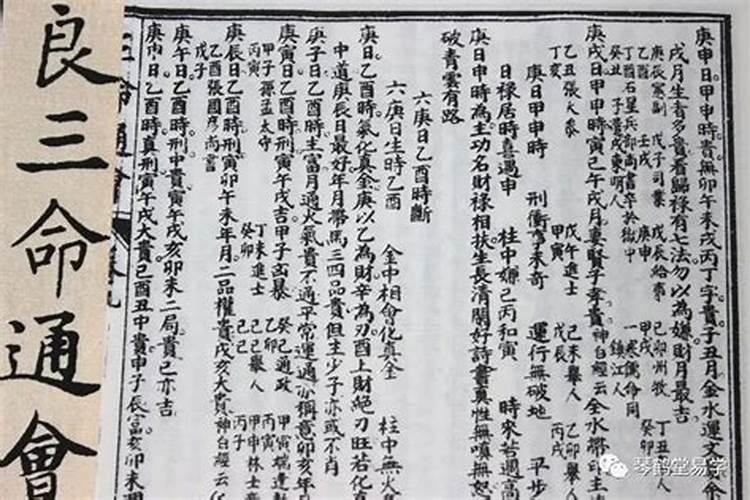 庚申日甲申時貴無卯午未戌丙丁字貴子丑月金水運文
戌月生者多貴看歸祿有七法勿以為嫌財月最吉
庚辰憲副 戊子司業 戊辰給事 己卯州牧 丁丑
丁酉 壬戌 庚申 甲戌 癸卯
丁酉石星兵部尚書卒於獄中 一寒儒命同
癸丑 子貴戌東明人 鎮江人
庚戌日甲申時刑寅巳午戌月妻賢子孝貴神白經云金水帶印主
乙丑張大參 戊午進士 己未舉人 乙卯舉
丁亥 甲寅 戊辰 丙戌
庚日甲申時 刑衝駕未奇 運行無破地 平步
日祿居時喜遇申 柱中嫌己丙和寅 時來若遇高
庚日申時為主功名財祿相扶生長清閒好詩書真性無嗔無怒
破青雲有路
六庚日乙酉時斷
六庚日生時乙酉 金中相會化真金 柱中無火
庚日乙酉時氣化真金庚以乙為財辛為刃酉上財絕刃旺若化真
中道庚辰日最好年月帶馬三四品貴但主少子亦或不肖
庚子日乙酉時主富月通火氣貴不通平常運通亦稱意卯亥年月
甲子孫孟太守 癸巳通政 甲寅
丙寅 乙卯 丙寅
庚寅日乙酉時刑寅午戌吉甲子凶暴
丁未進士 己巳舉人 甲申林士
癸卯 己巳 丙子
庚辰日乙酉時刑寅卯午未年月二品權貴戌亥大貴神白經云
乙酉張國彥尚書
戊子
庚午日乙酉時刑中貴寅午戌亥卯未二局貴巳亦吉
庚申日乙酉時真刑寅午戌大貴巳酉丑中貴申子辰富亥卯未
三命通會
良三命通會
琴鹤堂易学